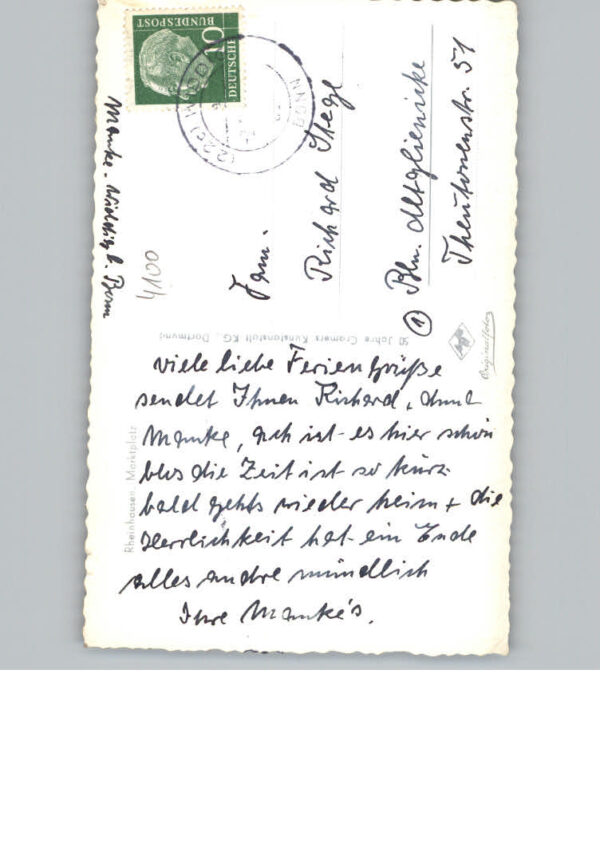 10
DEUTSCHE
BUNDESPOST
BONN
Manke. b. Bonn
4100
Fam.
Richard Stege
① Bln. Altglienicke
Theutonenstr. 51
50 Jahre Cramers Kunstanstalt KG., Dortmund
Originalfoto
Rheinhausen, Marktplatz
viele liebe Feriengrüße
sendet Ihnen Richard,
Manke, ach ist es hier schön
blos die Zeit ist so kurz
bald gehts wieder heim + die
Herrlichkeit hat ein Ende
alles andre mündlich
Ihre Manke's.